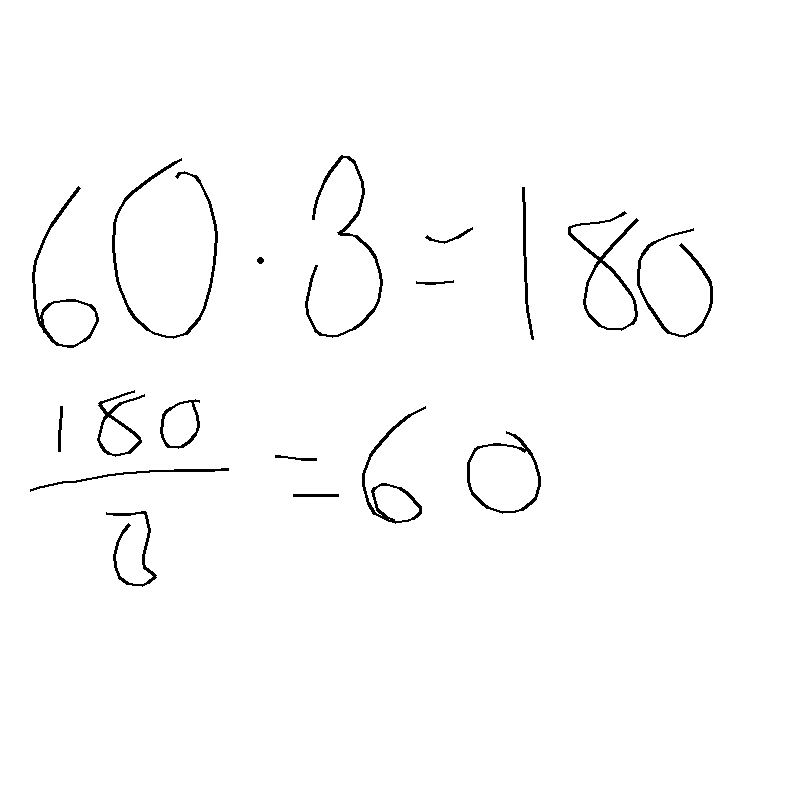 60 · 3 = 180
180/a = 60